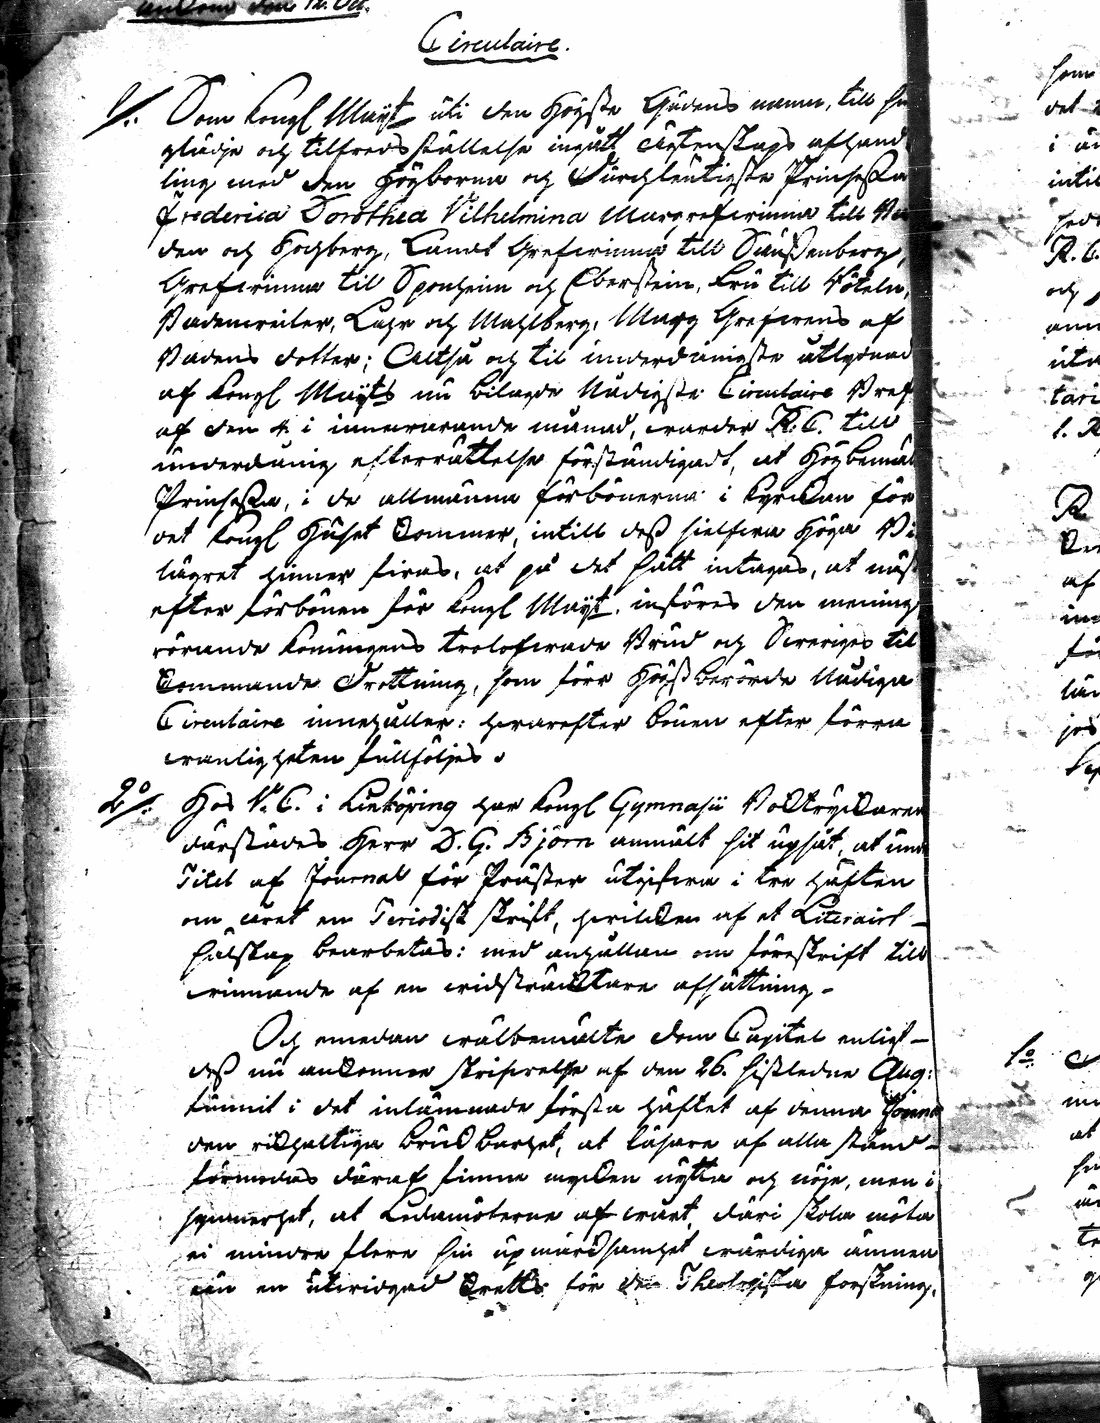 ankom den 12. Oct.
Circulaire.
1/. Som Kongl Mayt uti den Högste Gudens namn, till sin
glädje och tilfredsställelse ingått ägtenskaps afhand
ling med den Högborna och Durchleutigste Prinsessa
Frederica Dorothea Vilhelmina Margrefwinna till Ba
den och Hochberg, Landt Grefwinna till Saussenberg,
Grefwinna til Sponheim och Eberstein, Fru till Röteln,
Badenweiler, Lahr och Mahlberg, Marg Grefwens af
Badens dotter; Altså och til underdånigste åtlydnad
af Kongl Mayts nu bilagde Nådigste Circulaire Bref
af den 4. i innewarande månad, warder R. C. till
underdånig efterrättelse förständigadt, at Högbemäl
Prinsessa, i de allmänna förbönerna i Kyrckan för
det Kongl Huset kommer, intill dess sielfwa Höga Bi
lägret hinner firas, at på det sätt intagas, at näst
efter förbönen för Kongl Mayt. införes den mening,
rörande Konungens trolofwade Brud och Sweriges til
kommande Drottning, som förr Högstberörde Nådiga
Circulaire innehåller: hwarefter bönen efter förra
wanligheten fullföljes.
2o/. Hos V. C. i Linköping har Kongl Gymnasii Boktryckaren
därstädes Herr D. G. Björn anmält sit upsåt, at under
Titel af Journal för Präster utgifwa i tre häften
om året en Periodisk skrift, hwilcken af et Literairt
Sälskap bearbetas: med anhållan om föreskrift till
winnande af en widsträcktare afsättning.
Och emedan wälbemälte Dom Capitel enligt
dess nu ankomne skrifwelse af den 26. sistledne Aug:
funnit i det inlämnade första häftet af denna Journal
den rikhaltiga brukbarhet, at läsare af alla stånd
förmodas däraf finna mycken nytta och nöje, men i
synnerhet, at Ledamöterne af wårt, däri skola möta
ei mindre flere sin upmärcksamhet wärdiga ämnen
än en utwidgad krets för den Theologiska forskning,